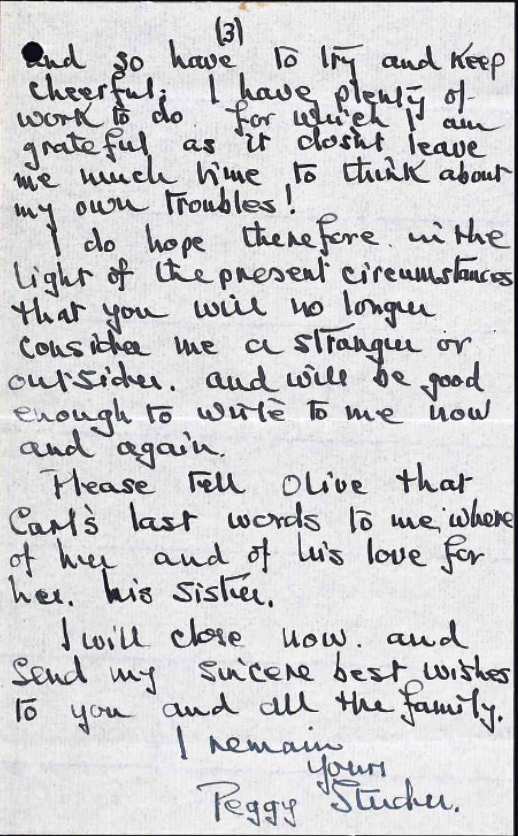 (3)
and so have to try and keep
cheerful; I have plenty of
work to do. for which I am
grateful as it dosnt leave
me much time to think about
my own troubles!
I do hope therefore. in the
light of the present circumstances
that you will no longer
consider me a stranger or
outsider. and will be good
enough to write to me now
and again.
Please tell Olive that
Carl's last words to me where
of her and of his love for
her. his sister.
I will close now. and
send my sincere best wishes
to you and all the family.
I remain
yours
Peggy